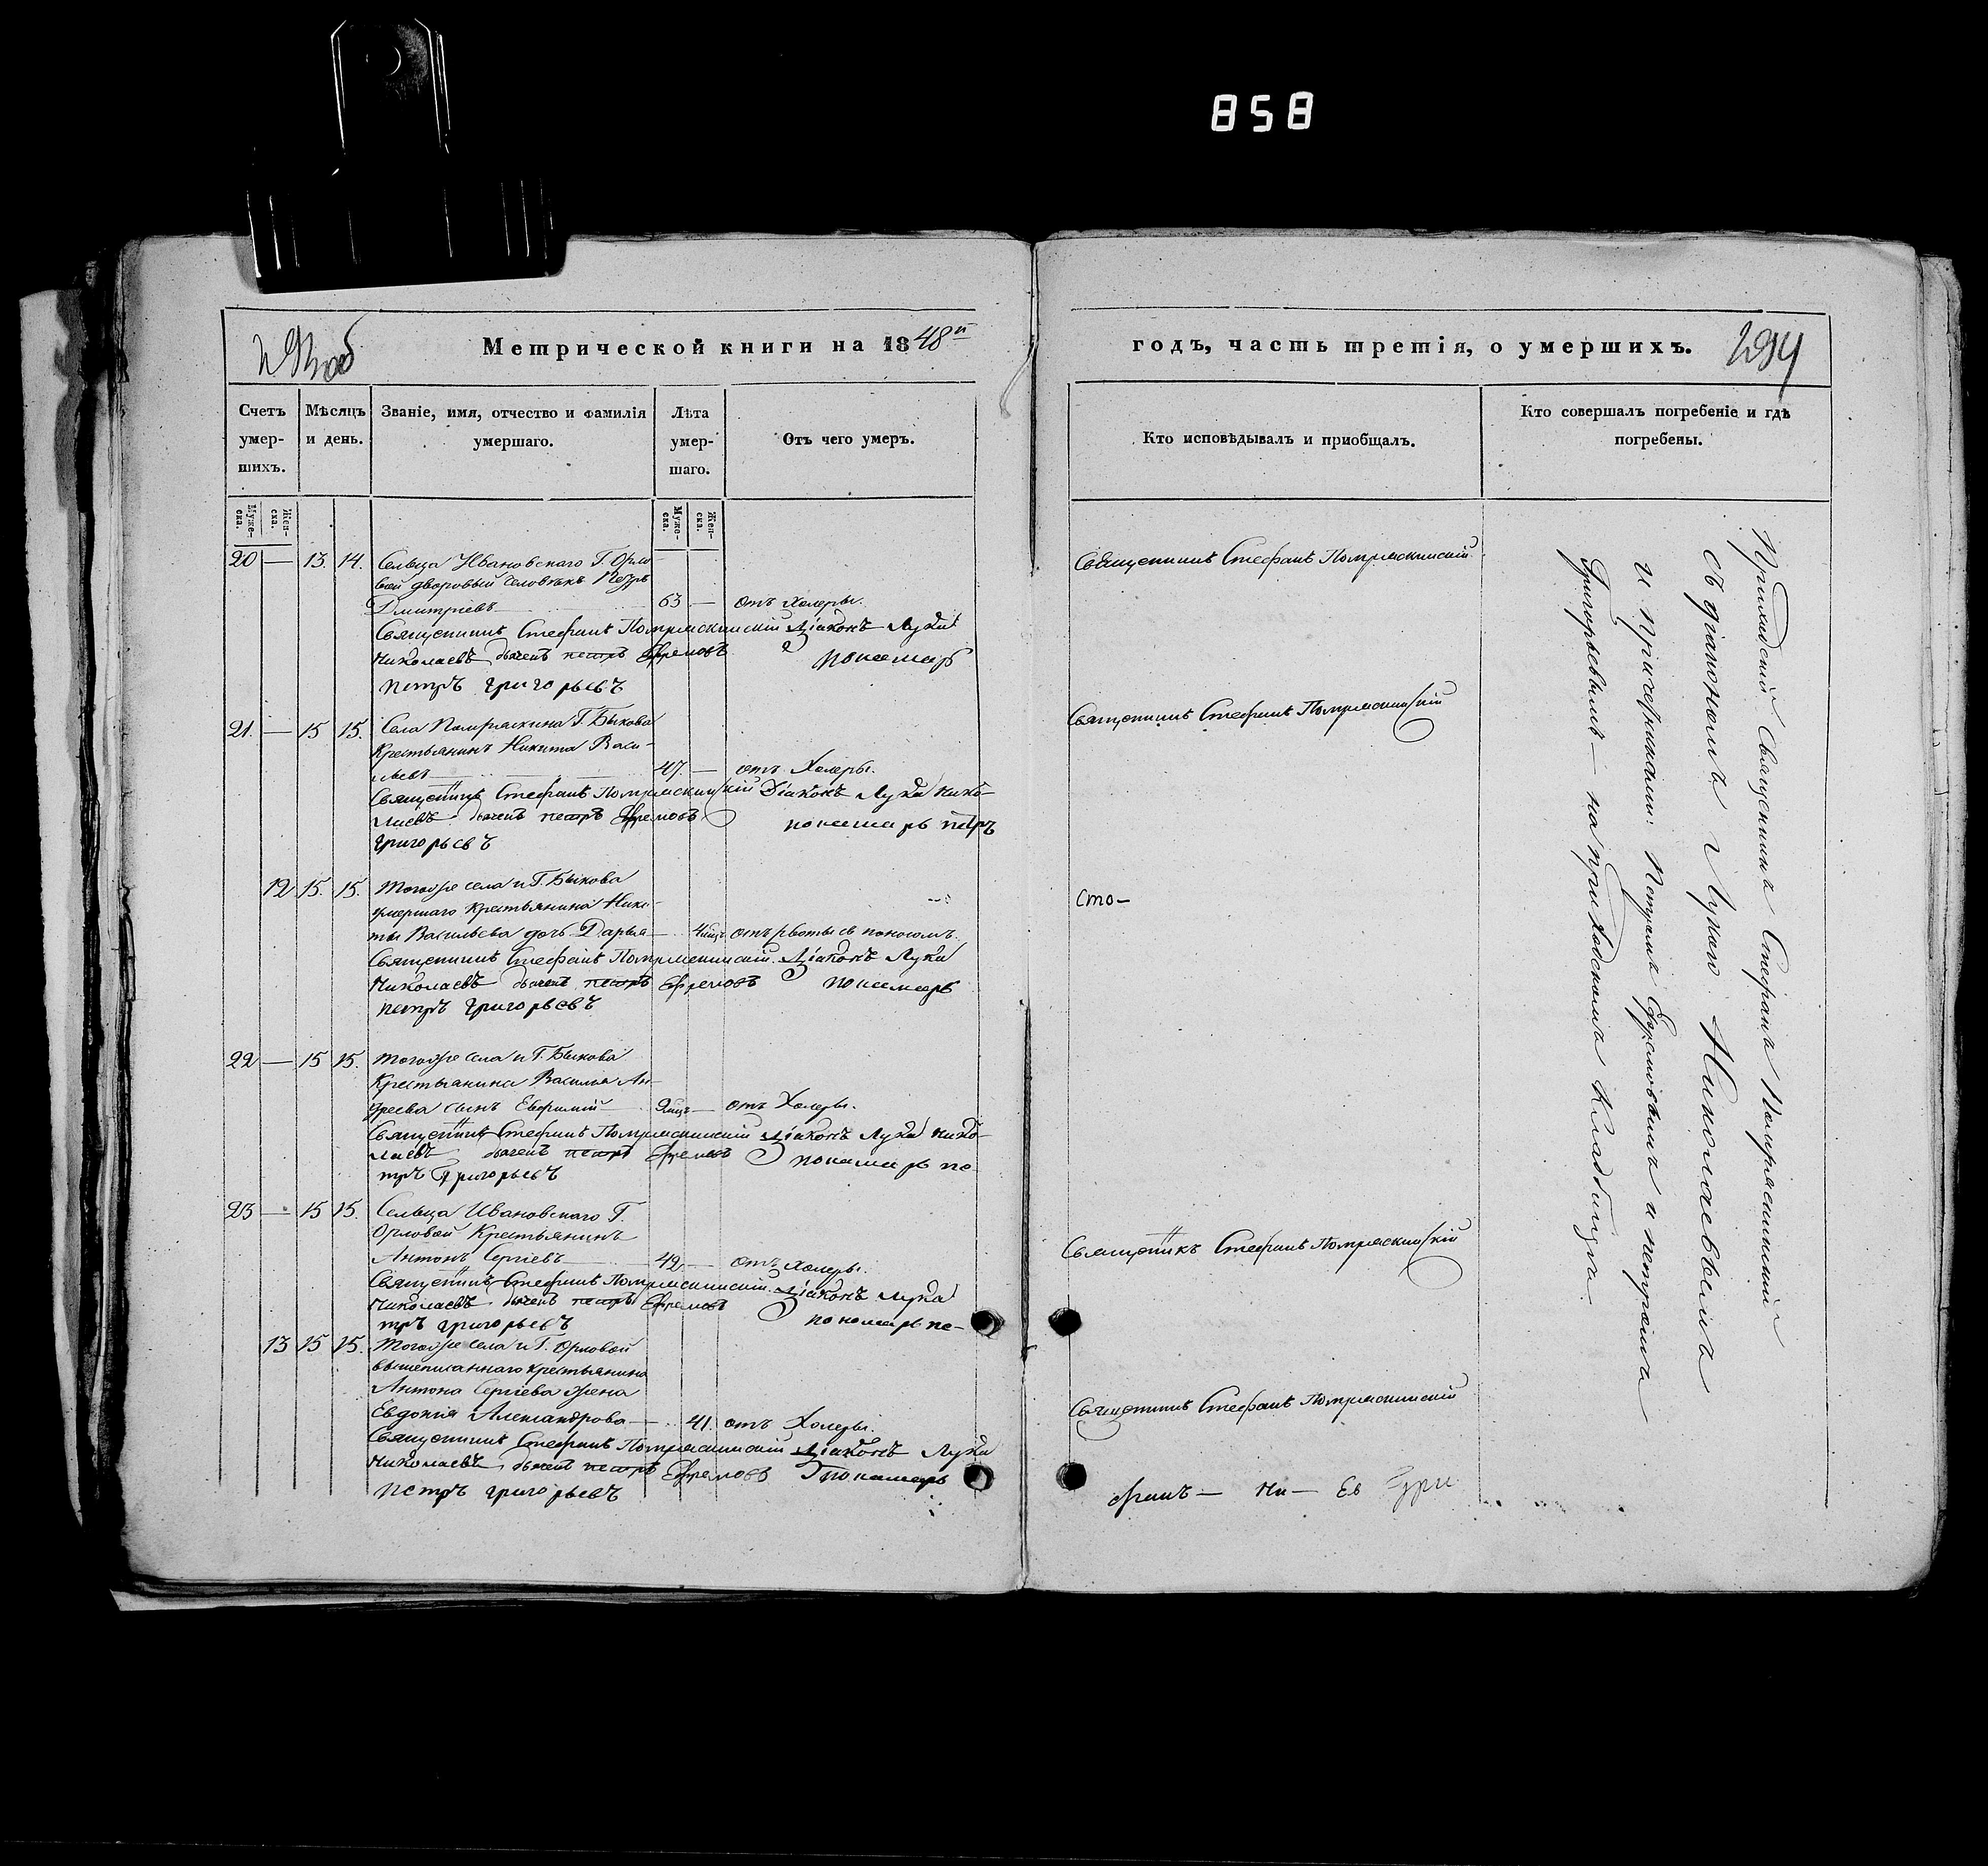 858
Метрической книги на 1848й
Счетъ умер-шихъ.
Мѣсяцъ и день.
Званіе, имя, отчество и фамилія умершаго.
Лѣта умер-шаго.
Отъ чего умеръ.
Муже-ска.
Жен-ска.
Муже-ска.
Жен-ска.
20 — 13. 14. Сельца Ивановскаго Г. Орло-
вой дворовый человѣкъ Петръ
Дмитріевъ 63 — отъ холеры.
Священникъ Стефанъ Помряскинскій Діаконъ Лука
Николаевъ дьячекъ петръ Ефремовъ пономарь
петръ григорьевъ
21. — 15 15. Села Помряскина Г. Быкова
Крестьянинъ Никита Васи-
льевъ 47. — отъ Холеры.
Священникъ Стефанъ Помряскинскій Діаконъ Лука Нико-
лаевъ дьячекъ петръ Ефремовъ пономарь петръ
григорьевъ
12 15. 15. Тогоже села и Г. Быкова
умершаго Крестьянина Ники-
ты Васильева дочь Дарья — отъ рвоты съ поносомъ.
Священникъ Стефанъ Помряскинскій Діаконъ Лука
Николаевъ дьячекъ петръ Ефремовъ пономарь
петръ григорьевъ
22 — 15 15. Тогоже села и Г. Быкова
Крестьянина Василья Ан-
дреева сынъ Евфимій — отъ Холеры.
Священникъ Стефанъ Помряскинскій Діаконъ Лука Нико-
лаевъ дьячекъ петръ Ефремовъ пономарь пе-
тръ григорьевъ
23 — 15 15. Сельца Ивановскаго Г.
Орловой Крестьянинъ
Антонъ Сергіевъ 42 — отъ холеры.
Священникъ Стефанъ Помряскинскій Діаконъ Лука
Николаевъ дьячекъ петръ Ефремовъ пономарь пе-
тръ григорьевъ
13 15 15. Тогоже села и Г. Орловой
вышеписаннаго крестьянина
Антона Сергіева жена
Евдокія Александрова — 41. отъ Холеры.
Священникъ Стефанъ Помряскинскій Діаконъ Лука
Николаевъ дьячекъ петръ Ефремовъ пономарь
петръ григорьевъ
годъ, часть третія, о умершихъ.
294
Кто исповѣдывалъ и пріобщалъ.
Кто совершалъ погребеніе и гдѣ погребены.
Священникъ Стефанъ Помряскинскій
Священникъ Стефанъ Помряскинскій
Сте-
Священникъ Стефанъ Помряскинскій
Священникъ Стефанъ Помряскинскій
фанъ — Ни — Ев Гри
Приходскій Священникъ Стефанъ Помряскинскій
съ діакономъ Лукою Николаевымъ
и Причетниками: Петромъ Ефремовымъ и петромъ
Григорьевымъ — на приходскомъ Кладбищѣ.